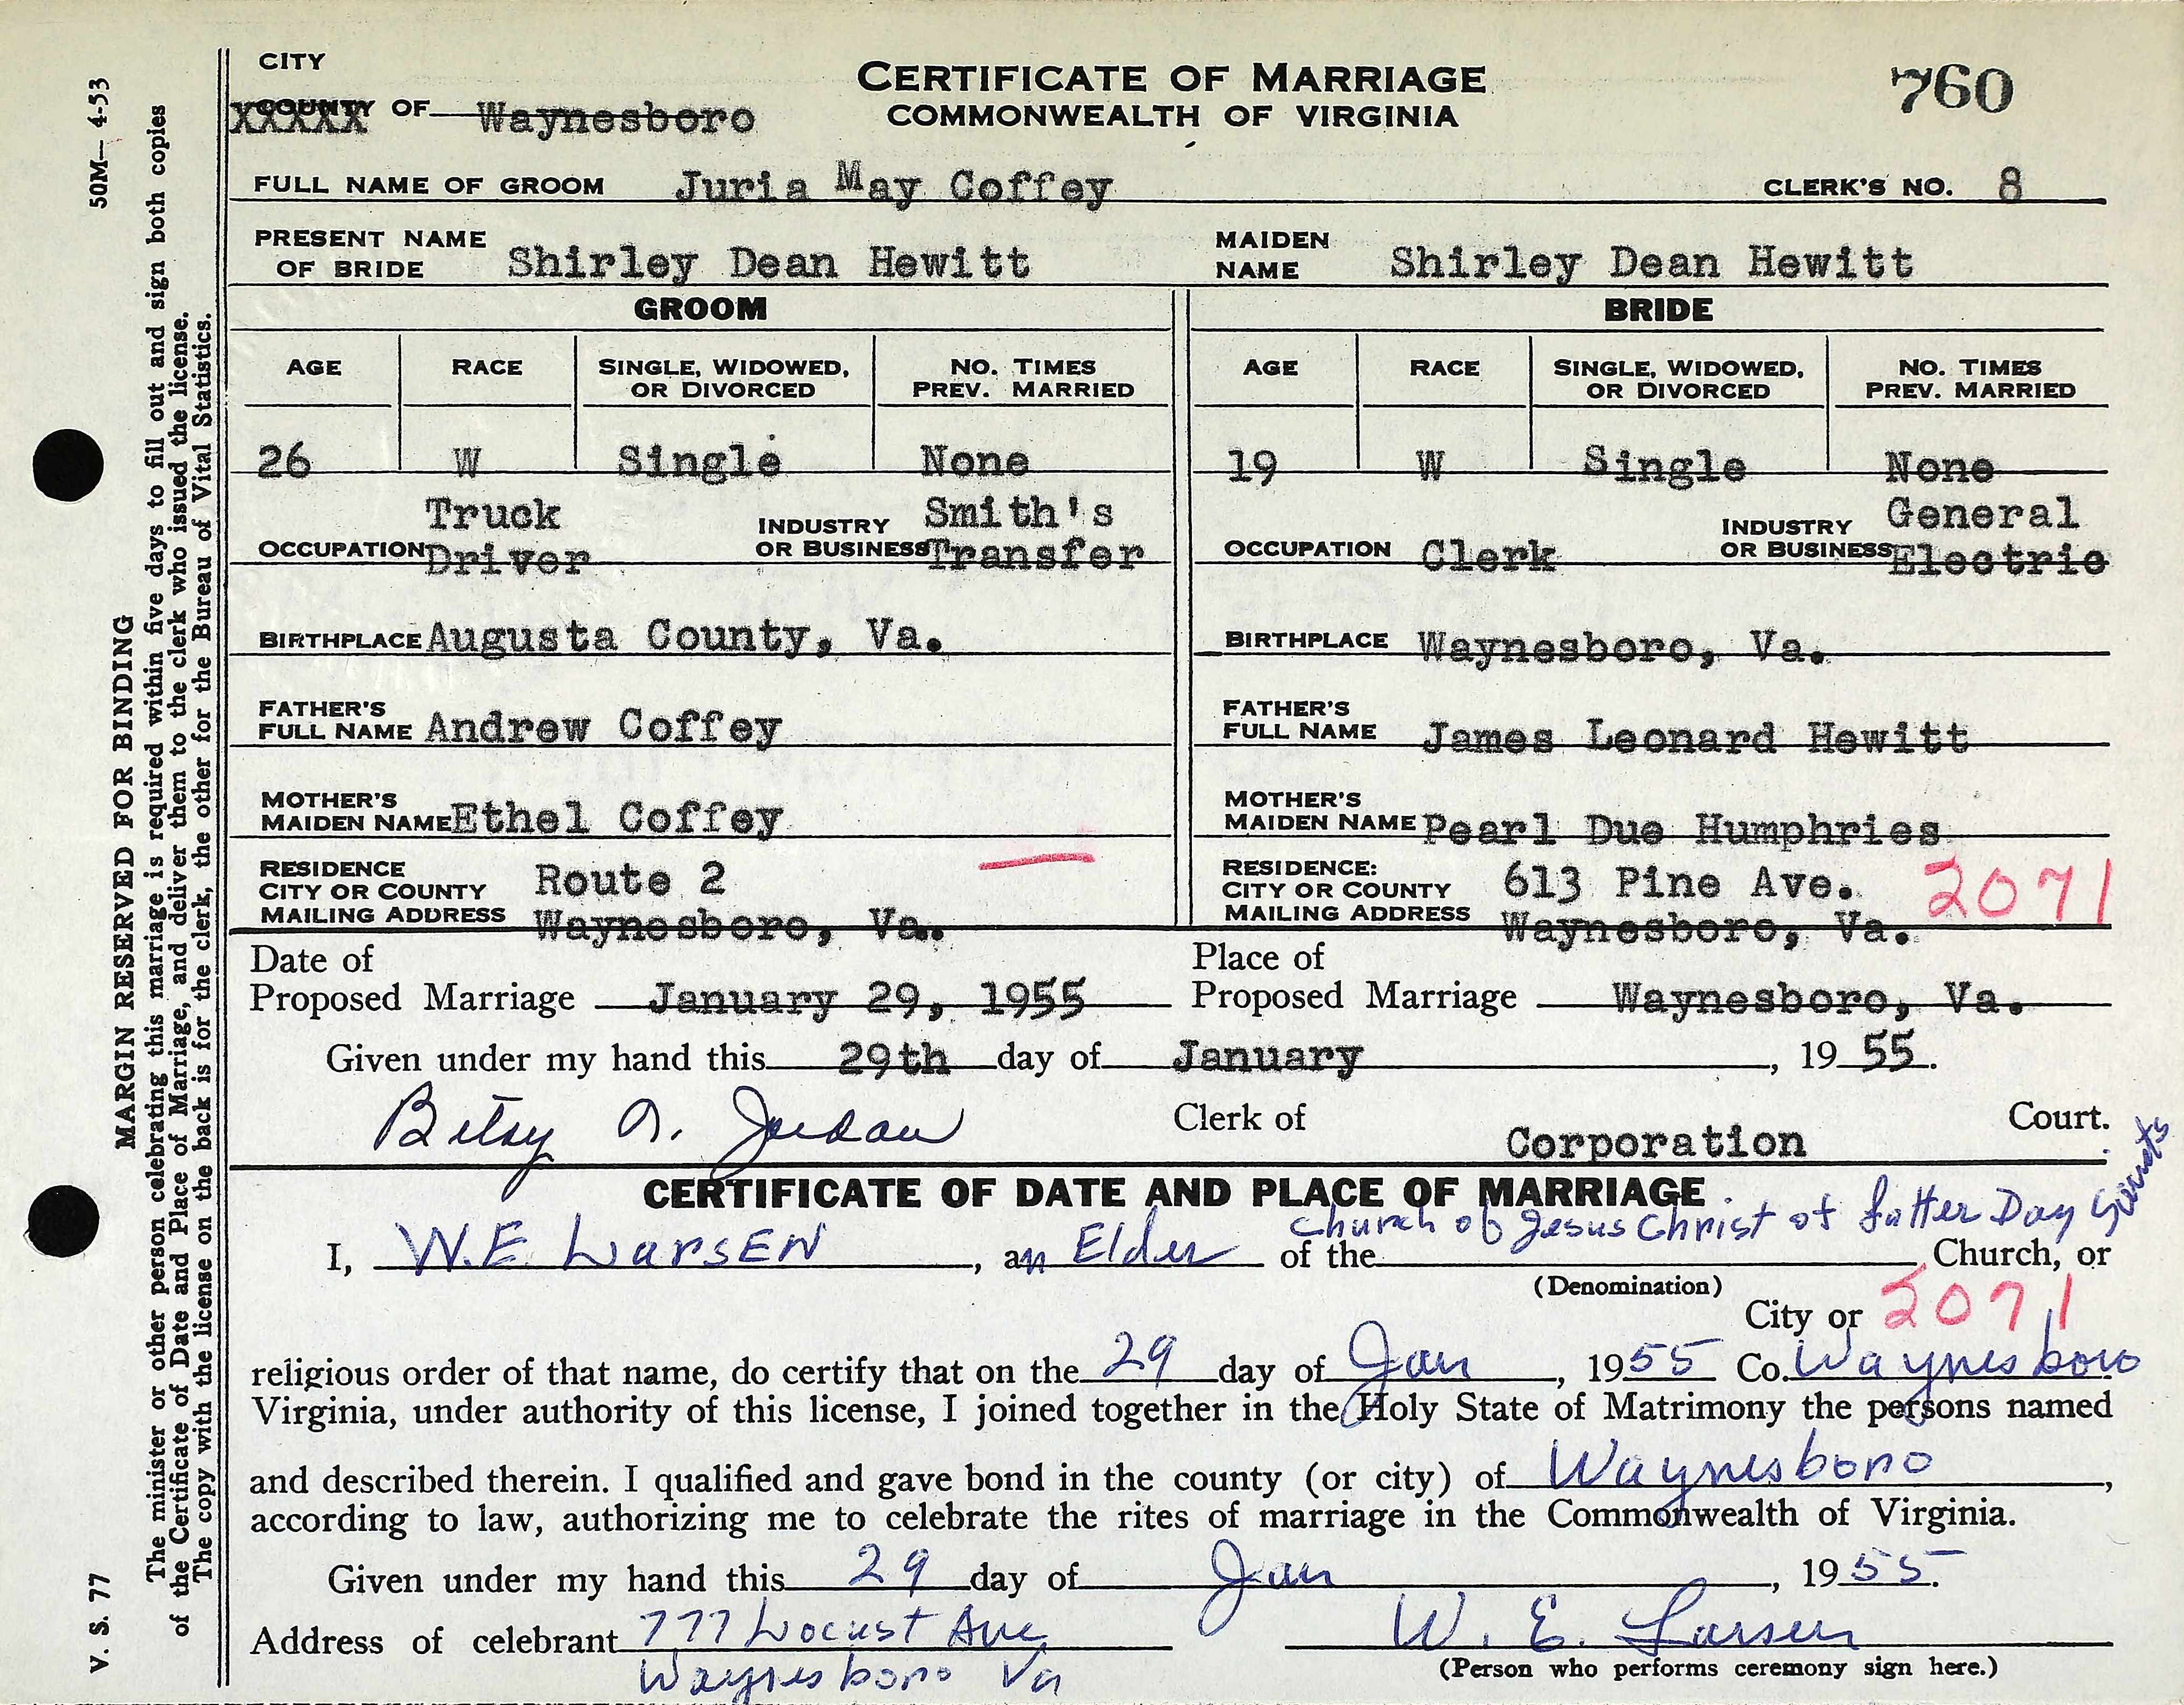 CITY
COUNTY OF Waynesboro
CERTIFICATE OF MARRIAGE
COMMONWEALTH OF VIRGINIA
760
FULL NAME OF GROOM Juria May Coffey CLERK'S NO. 8
PRESENT NAME OF BRIDE Shirley Dean Hewitt MAIDEN NAME Shirley Dean Hewitt
GROOM
AGE RACE SINGLE, WIDOWED, OR DIVORCED NO. TIMES PREV. MARRIED
26 W Single None
OCCUPATION Truck Driver INDUSTRY OR BUSINESS Smith's Transfer
BIRTHPLACE Augusta County, Va.
FATHER'S FULL NAME Andrew Coffey
MOTHER'S MAIDEN NAME Ethel Coffey
RESIDENCE CITY OR COUNTY MAILING ADDRESS Route 2 Waynesboro, Va.
BRIDE
AGE RACE SINGLE, WIDOWED, OR DIVORCED NO. TIMES PREV. MARRIED
19 W Single None
OCCUPATION Clerk INDUSTRY OR BUSINESS General Electric
BIRTHPLACE Waynesboro, Va.
FATHER'S FULL NAME James Leonard Hewitt
MOTHER'S MAIDEN NAME Pearl Due Humphries
RESIDENCE: CITY OR COUNTY MAILING ADDRESS 613 Pine Ave. Waynesboro, Va.
2071
Date of Proposed Marriage January 29, 1955 Place of Proposed Marriage Waynesboro, Va.
Given under my hand this 29th day of January, 1955.
Betsy Jordan Clerk of Corporation Court.
CERTIFICATE OF DATE AND PLACE OF MARRIAGE
I, W.E. Larsen, an Elder of the Church of Jesus Christ of Latter Day Saints Church, or
(Denomination)
City or 2071
religious order of that name, do certify that on the 29 day of Jan, 1955 Co. Waynesboro
Virginia, under authority of this license, I joined together in the Holy State of Matrimony the persons named
and described therein. I qualified and gave bond in the county (or city) of Waynesboro,
according to law, authorizing me to celebrate the rites of marriage in the Commonwealth of Virginia.
Given under my hand this 29 day of Jan, 1955.
Address of celebrant 777 Locust Ave W. E. Larsen
Waynesboro Va (Person who performs ceremony sign here.)
50M—4-53
V. S. 77
MARGIN RESERVED FOR BINDING
The minister or other person celebrating this marriage is required within five days to fill out and sign both copies
of the Certificate of Date and Place of Marriage, and deliver them to the clerk who issued the license.
The copy with the license on the back is for the clerk, the other for the Bureau of Vital Statistics.